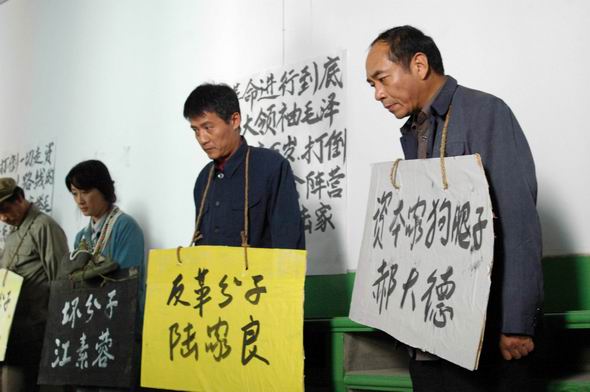 打倒一切走资
路线的
革命进行到底
大领袖毛泽
万岁,打倒
阵营
陆家
坏分子
江素蓉
反革分子
陆家良
资本家狗腿子
郝大德